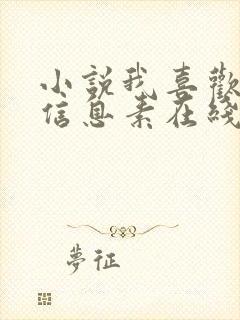 小說我喜歡
信息素在綫
夢征